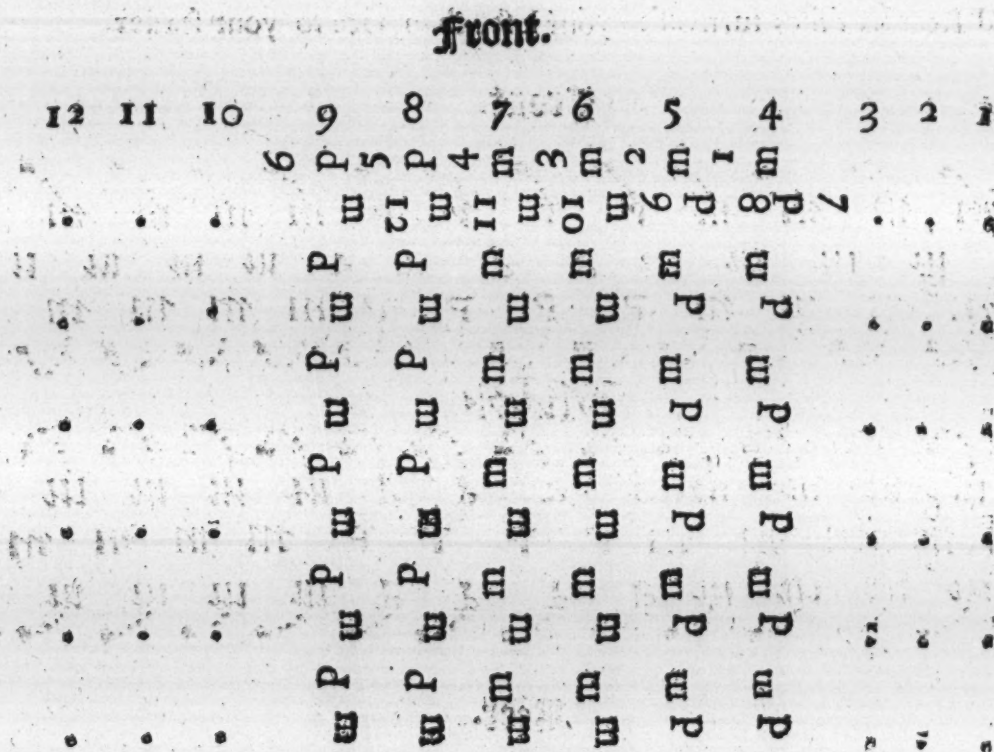 Front.
12 11 10 9 8 7 6 5 4 3 2 1
6 p 5 p 4 m 3 m 2 m 1 m
. . . m 12 m 11 m 10 m 9 p 8 p 7 . . .
p p m m m m
. . . m m m m p p . . .
p p m m m m
. . . m m m m p p . . .
p p m m m m
. . . m m m m p p . . .
p p m m m m
. . . m m m m p p . . .
p p m m m m
. . . m m m m p p . . .